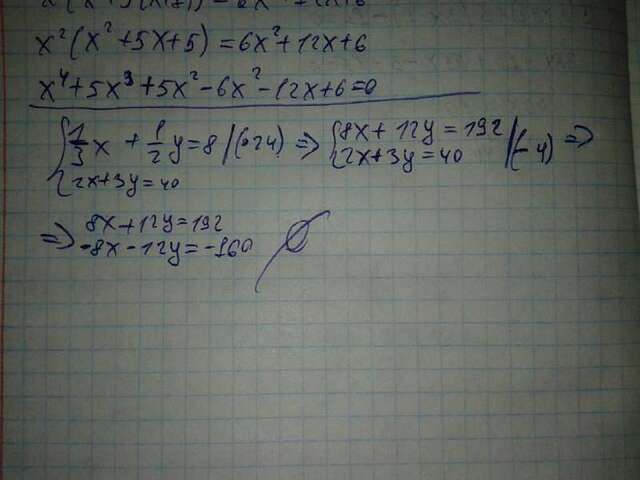 x²(x²+5x+5)=6x²+12x+6
x⁴+5x³+5x²-6x²-12x+6=0
{1/3x + 1/2y=8 /(·24) => {8x+12y=192 /(-4) =>
2x+3y=40 2x+3y=40
=> 8x+12y=192
-8x-12y=-160 ∅